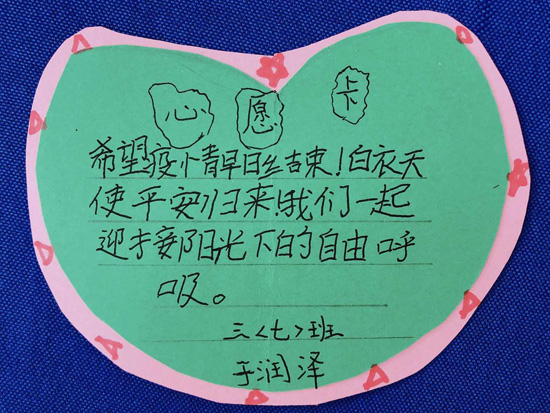 心愿卡
希望疫情早日结束！白衣天
使平安归来！我们一起
迎接阳光下的自由呼
吸。
三〈七〉班
于润泽